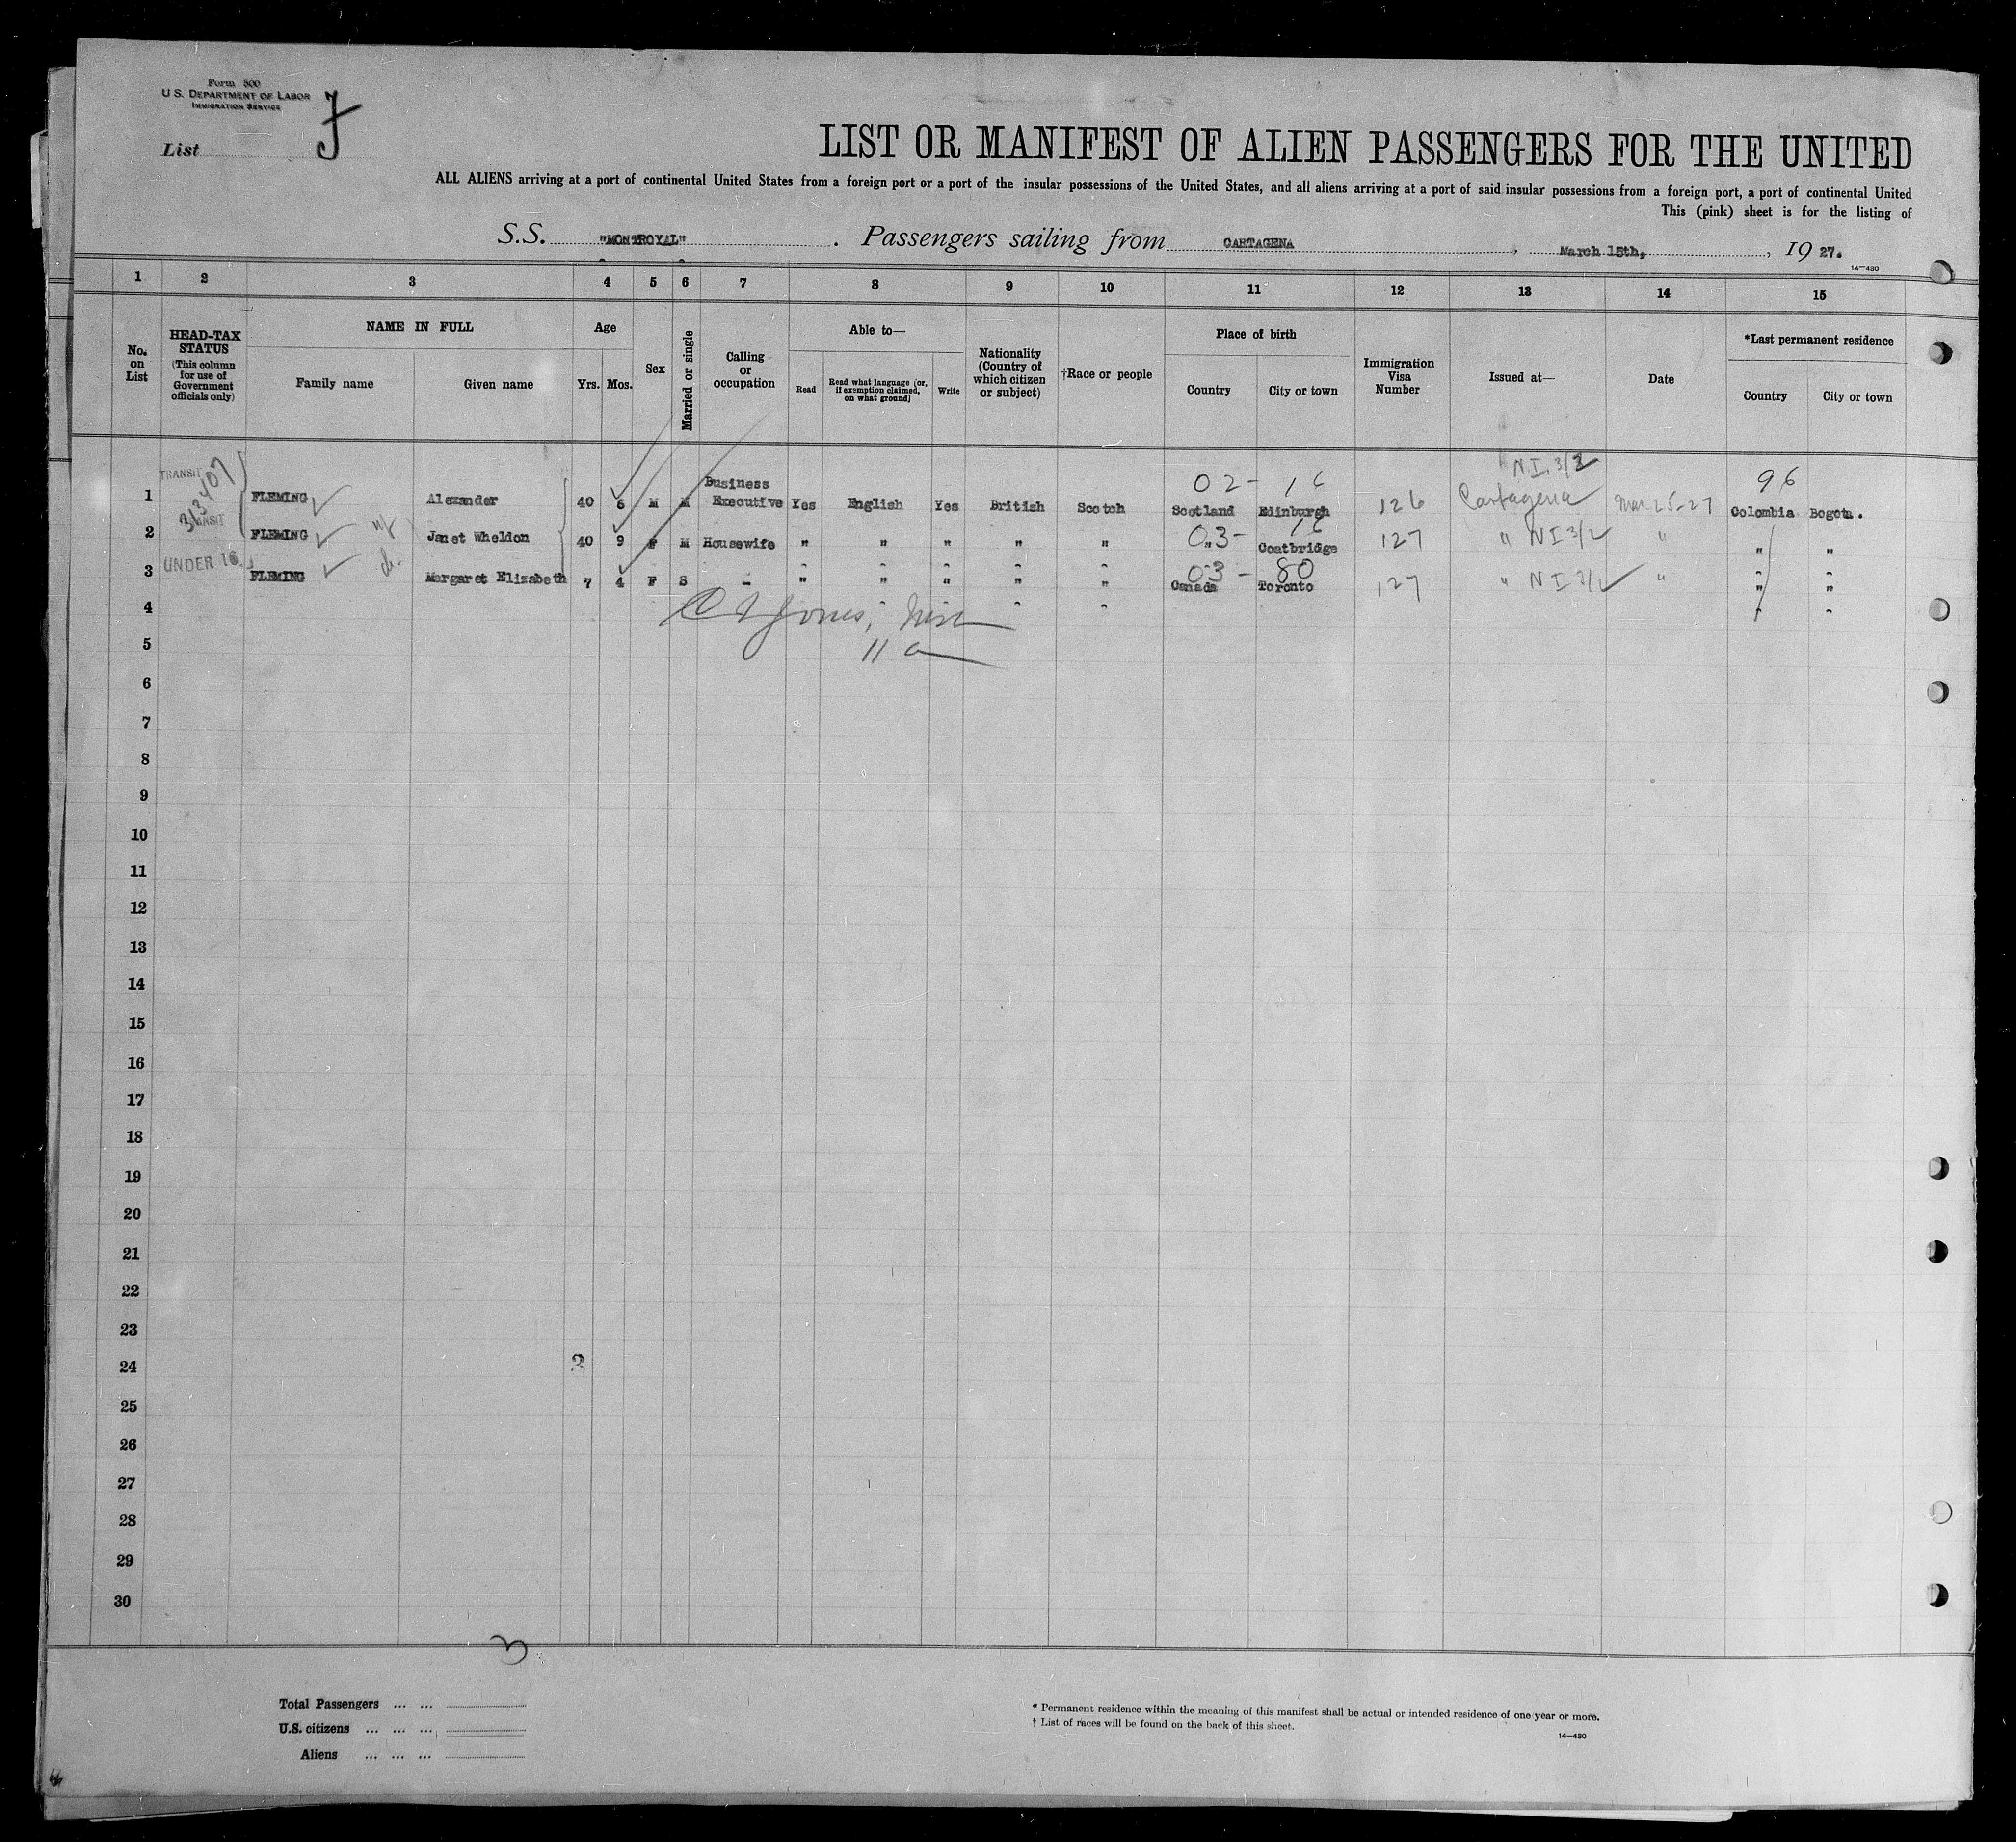 Form 500
U.S. DEPARTMENT OF LABOR
IMMIGRATION SERVICE
List
LIST OR MANIFEST OF ALIEN PASSENGERS FOR THE UNITED
ALL ALIENS arriving at a port of continental United States from a foreign port or a port of the insular possessions of the United States, and all aliens arriving at a port of said insular possessions from a foreign port, a port of continental United
This (pink) sheet is for the listing of
S.S. "MONTROYAL" . Passengers sailing from CARTAGENA , March 15th, , 19 27.
14—430
1 2 3 4 5 6 7 8 9 10 11 12 13 14 15
No. on List
HEAD-TAX STATUS
(This column for use of Government officials only)
NAME IN FULL
Family name Given name
Age
Yrs. Mos.
Sex
Married or single
Calling or occupation
Able to—
Read
Read what language (or, if exemption claimed, on what ground)
Write
Nationality (Country of which citizen or subject)
†Race or people
Place of birth
Country City or town
Immigration Visa Number
Issued at—
Date
*Last permanent residence
Country City or town
TRANSIT
313407
N.I. 3/2
02 - 96
1 FLEMING Alexander 40 6 M M Business Executive Yes English Yes British Scotch Scotland Edinburgh 126 Cartagena Mar 25-27 Colombia Bogota.
03 -
2 FLEMING Janet Wheldon 40 9 F M Housewife " " " " " " Coatbridge 127 " NI 3/2 " " "
UNDER 16
03 - 80
3 FLEMING Margaret Elizabeth 7 4 F S - " " " " " Canada Toronto 127 " NI 3/2 " " "
4
11 a
5
6
7
8
9
10
11
12
13
14
15
16
17
18
19
20
21
22
23
24
25
26
27
28
29
30
3
Total Passengers ... ...
U.S. citizens ... ... ...
Aliens ... ... ...
* Permanent residence within the meaning of this manifest shall be actual or intended residence of one year or more.
† List of races will be found on the back of this sheet.
14—430